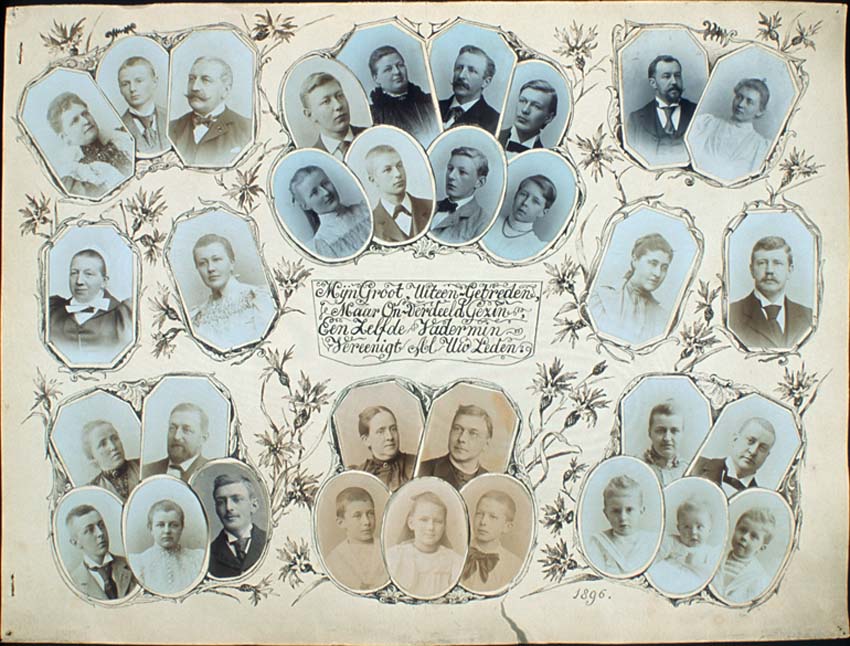 Mijn Groot, Uiteen-Getreden,
Maar On-Verdeeld Gezin
Een Zelfde Vadermin
Vereenigt Al Uw Leden.
1896.